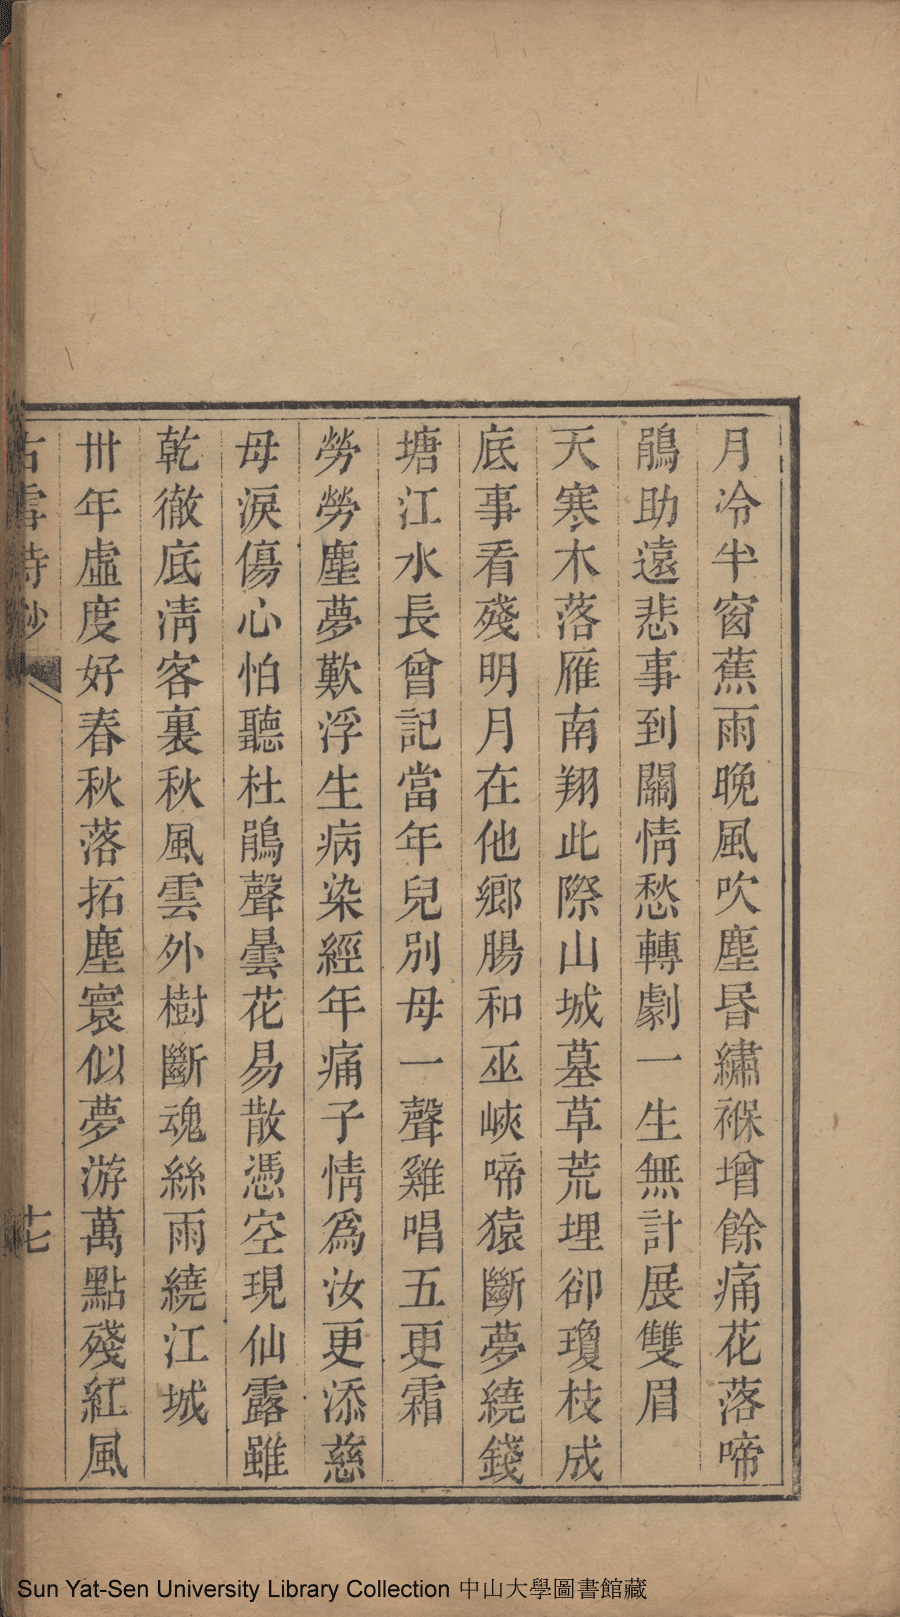 月冷半窗蕉雨晚風吹塵昬繡褓增餘痛花落啼
鵑助遠悲事到關情愁轉劇一生無計展雙眉
天寒木落雁南翔此際山城墓草荒埋卻瓊枝成
底事看殘明月在他鄉腸和巫峽啼猿斷夢繞錢
塘江水長曾記當年兒別母一聲雞唱五更霜
勞勞塵夢歎浮生病染經年痛子情爲汝更添慈
母淚傷心怕聽杜鵑聲曇花易散憑空現仙露雖
乾徹底淸客裏秋風雲外樹斷魂絲雨繞江城
卅年虛度好春秋落拓塵寰似夢游萬點殘紅風
古雪詩鈔
十七
Sun Yat-Sen University Library Collection 中山大學圖書館藏